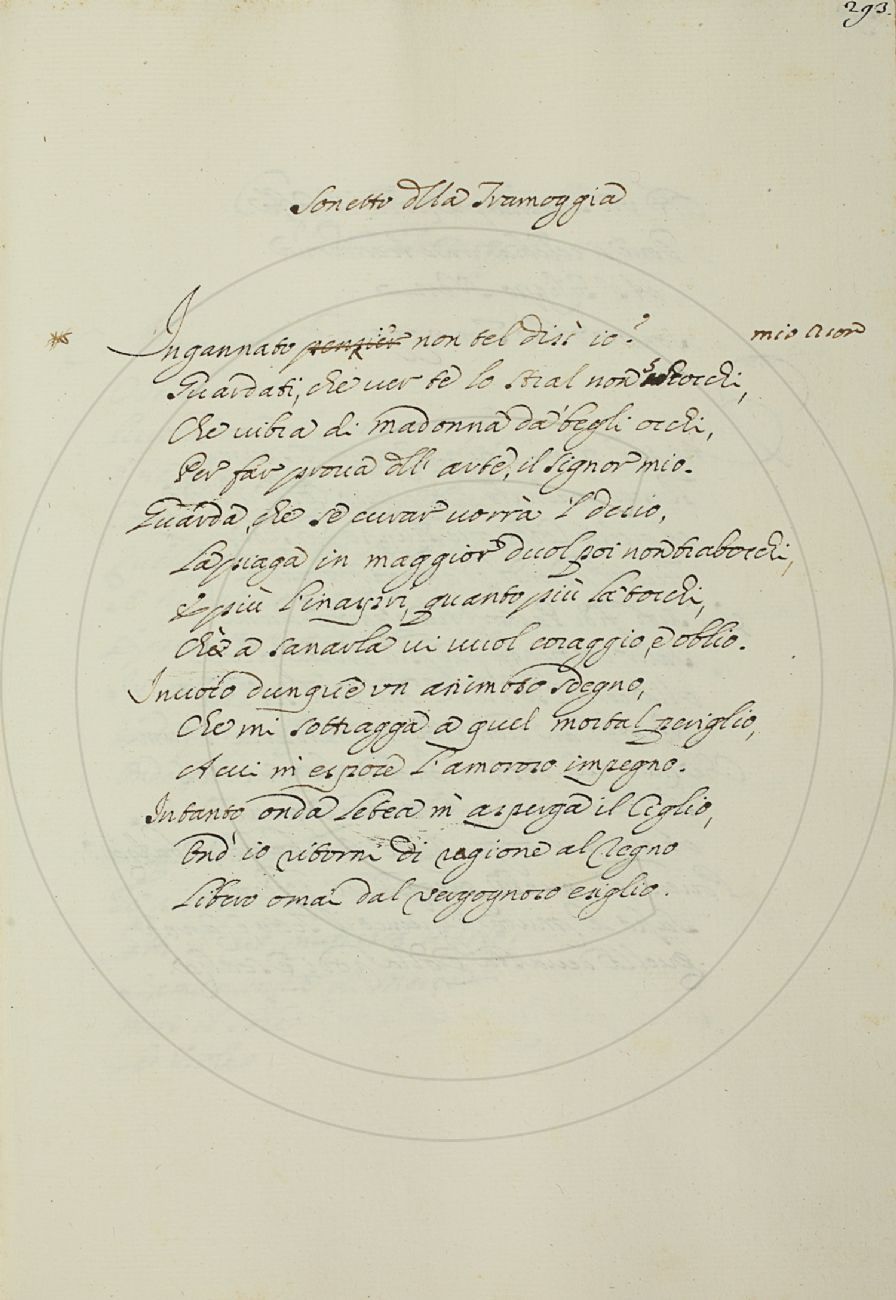 293.
Sonetto dlla Tramoggia
Ingannato pensier non tel diss' io? mio Cuor
Guardati, che ver te lo stral non scocchi,
Che vibra di madonna da' begli occhi,
Per far prova dell' arte, il Signor mio.
Guarda, che se curar vorrà 'l desio,
La piaga in maggior duol poi non trabocchi,
E più l'inaspri, quanto più la tocchi,
Chè a sanarla vi vuol coraggio, e oblio.
Invoco dunque un animoso sdegno,
Che mi sottragga a quel mortal periglio,
A cui m'espose l'amoroso impegno.
Intanto onda Letea m'asperga il Ciglio,
Ond' io ritorni di ragione al Regno
Libero omai dal vergognoso esiglio.